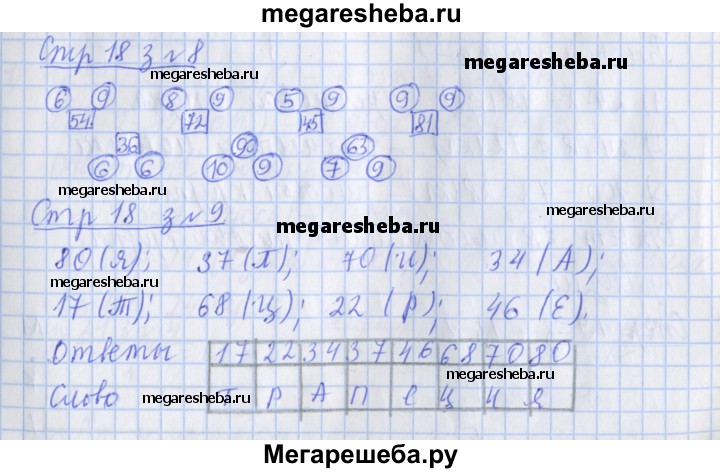 megaresheba.ru
Стр 18 з №8
megaresheba.ru megaresheba.ru
6 9 8 9 5 9 9 9
54 72 45 81
36 90 63
6 6 10 9 7 9
megaresheba.ru
Стр 18 з №9
megaresheba.ru
80 (Я); 37 (П); 70 (И); 34 (А);
megaresheba.ru
17 (Т); 68 (Ц); 22 (Р); 46 (Е).
Ответы 17 22 34 37 46 68 70 80
megaresheba.ru
Слово Т Р А П Е Ц И Я
megaresheba.ru
Мегарешеба.ру